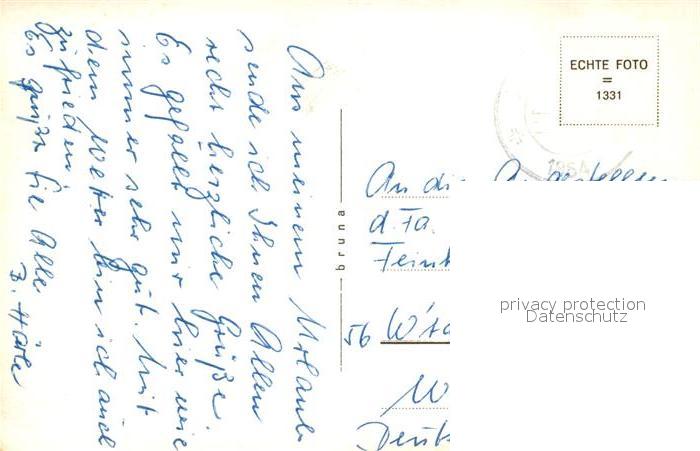 Aus meinem Urlaub
sende ich Ihnen Allen
recht herzliche Grüße.
Es gefällt mir hier wie
immer sehr gut. Mit
dem Wetter bin ich auch
zufrieden.
Es grüßt Sie Alle
B. Härle
bruna
ECHTE FOTO
=
1331
1964
An die Angestellten
d. Fa.
Feink
56 W'ta
W
Deuts
privacy protection
Datenschutz